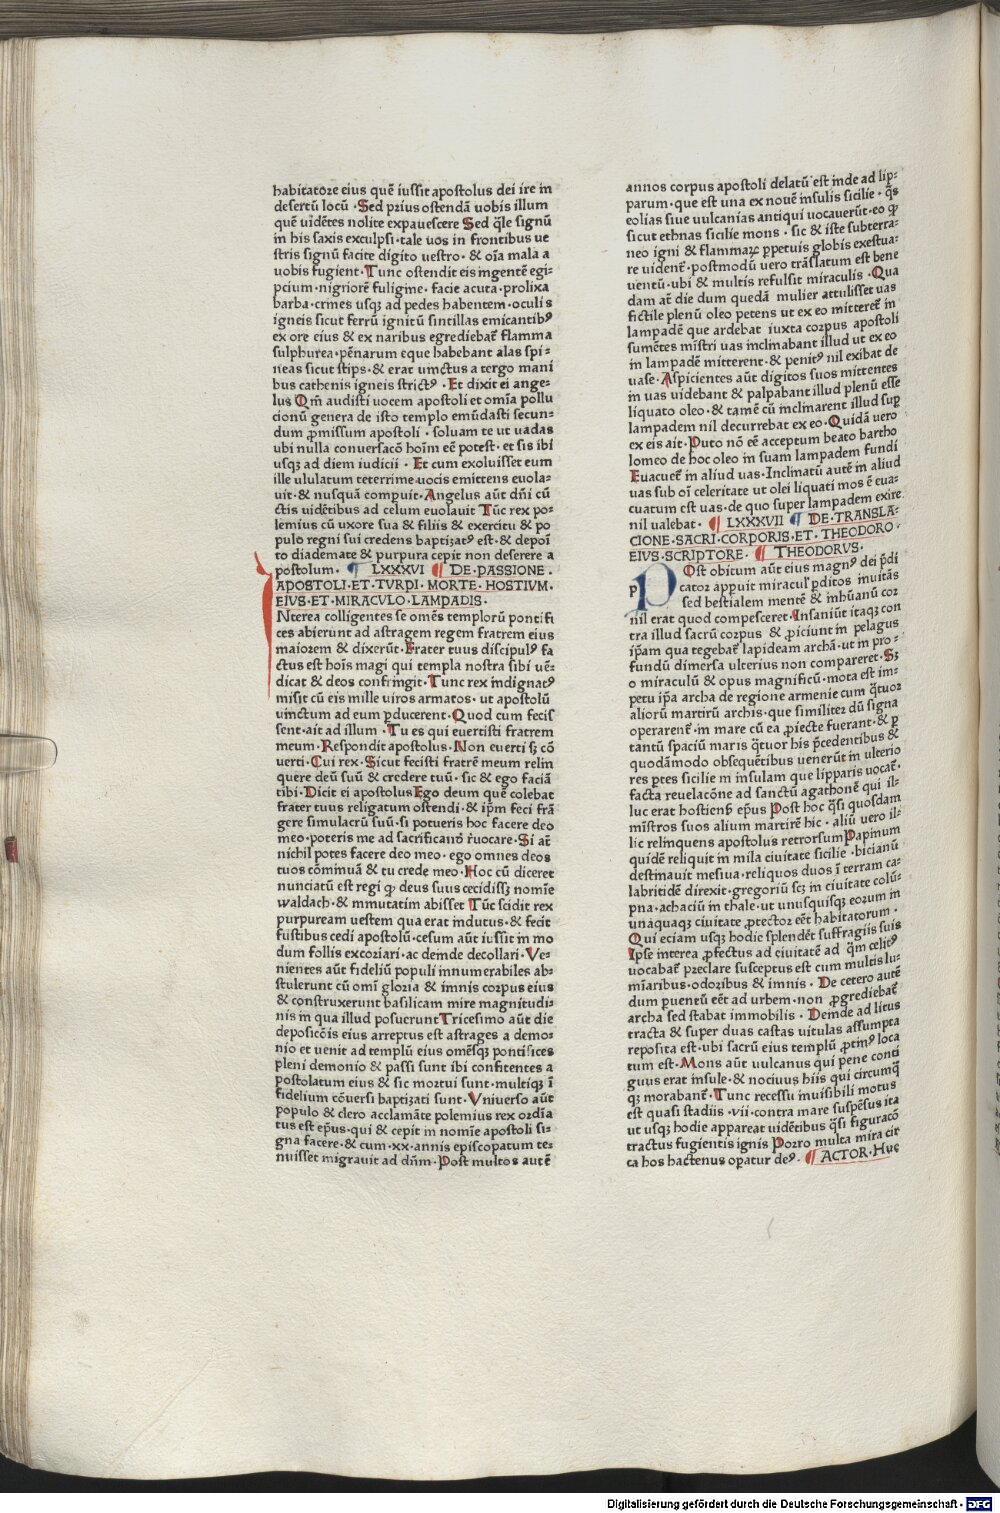 habitatore eius quē iussit apostolus dei ire in
desertū locū · Sed prius ostendā uobis illum
quē uidētes nolite expauescere Sed q̄le signū
in his saxis exculpsi · tale uos in frontibus ue
stris signū facite digito uestro · & oīa mala a
uobis fugient · Tunc ostendit eis ingentē egi⸗
pcium · nigriorē fuligine · facie acuta · prolixa
barba · crines usqꝫ ad pedes habentem · oculis
igneis sicut ferrū ignitū sintillas emicantibꝰ
ex ore eius & ex naribus egrediebat̄ flamma
sulphurea · pēnarum eque habebant alas spi⸗
neas sicut stips · & erat uinctus a tergo mani
bus cathenis igneis strictꝰ · Et dixit ei ange⸗
lus Qm̄ audisti uocem apostoli et omīa pollu
cionū genera de isto templo emūdasti secun⸗
dum ꝓmissum apostoli · soluam te ut uadas
ubi nulla conuersacō hoīm eē potest · et sis ibi
usqꝫ ad diem iudicii · Et cum exoluisset eum
ille ululatum teterrime uocis emittens euola⸗
uit · & nusquā compuit · Angelus aūt dn̄i cū
ctis uidētibus ad celum euolauit Tūc rex po⸗
lemius cū uxore sua & filiis & exercitu & po
pulo regni sui credens baptizatꝰ est · & depoī
to diademate & purpura cepit non deserere a
postolum · ¶ LXXXVI ¶ DE · PASSIONE ·
APOSTOLI · ET · TVRPI · MORTE · HOSTIVM ·
EIVS · ET · MIRACVLO · LAMPADIS ·
Nterea colligentes se omēs templorū pontifi
ces abierunt ad astragem regem fratrem eius
maiorem & dixerūt · Frater tuus discipulꝰ fa
ctus est hoīs magi qui templa nostra sibi uē⸗
dicat & deos confringit · Tunc rex indignatꝰ
misit cū eis mille uiros armatos · ut apostolū
uinctum ad eum ꝑducerent · Quod cum fecis
sent · ait ad illum · Tu es qui euertisti fratrem
meum · Respondit apostolus · Non euerti sꝫ cō
uerti · Cui rex · Sicut fecisti fratrē meum relin
quere deū suū & credere tuū · sic & ego faciā
tibi · Dicit ei apostolus Ego deum quē colebat
frater tuus religatum ostendi · & ip̄m feci frā
gere simulacrū suū · si potueris hoc facere deo
meo · poteris me ad sacrificand̄ r̄uocare · Si at̄
nichil potes facere deo meo · ego omnes deos
tuos cōminuā & tu crede meo · Hoc cū diceret
nunciatū est regi ꝙ deus suus cecidissꝫ nomīe
waldach · & inmutatim abisset Tūc scidit rex
purpuream uestem qua erat indutus · & fecit
fustibus cedi apostolū · cesum aūt iussit in mo
dum follis excoriari · ac deinde decollari · Ve⸗
nientes aūt fideliū populi innumerabiles ab⸗
stulerunt cū omī gloria & imnis corpus eius
& construxerunt basilicam mire magnitudi⸗
nis in qua illud posuerunt Tricesimo aūt die
deposicōis eius arreptus est astrages a demo⸗
nio et uenit ad templū eius omēsqꝫ pontifices
pleni demonio & passi sunt ibi confitentes a
postolatum eius & sic mortui sunt · multiqꝫ ī
fidelium cōuersi baptizati sunt · Vniuerso aūt
populo & clero acclamāte polemius rex ordīa
tus est ep̄us · qui & cepit in nomīe apostoli si⸗
gna facere · & cum · xx · annis episcopatum te⸗
nuisset migrauit ad dn̄m · Post multos autē
annos corpus apostoli delatū est inde ad lip⸗
parum · que est una ex nouē insulis sicilie · q̄s
eolias siue uulcanias antiqui uocauerūt · eo ꝙ
sicut ethnas sicilie mons · sic & iste subterra⸗
neo igni & flammaꝝ ꝑpetuis globis exestua⸗
re uidet̄ · postmodū uero trāslatum est bene
uentū · ubi & multis refulsit miraculis · Qua
dam at̄ die dum quedā mulier attulisset uas
fictile plenū oleo petens ut ex eo mitteret̄ in
lampadē que ardebat iuxta corpus apostoli
sumētes mīstri uas inclinabant illud ut ex eo
in lampadē mitterent · & penitꝰ nil exibat de
uase · Aspicientes aūt digitos suos mittentes
in uas uidebant & palpabant illud plenū esse
liquato oleo · & tamē cū inclinarent illud suꝑ
lampadem nil decurrebat ex eo · Quidā uero
ex eis ait · Puto nō eē acceptum beato bartho
lomeo de hoc oleo in suam lampadem fundi
Euacuet̄ in aliud uas · Inclinatū autē in aliud
uas sub oī celeritate ut olei liquati mos ē eua⸗
cuatum est uas · de quo super lampadem exire
nil ualebat · ¶ LXXXVII ¶ DE · TRANSLA⸗
CIONE · SACRI · CORPORIS · ET · THEODORO ·
EIVS · SCRIPTORE · ¶ THEODORVS ·
POst obitum aūt eius magnꝰ dei p̄di
cator appuit miracul̕ ꝑditos inuitās
sed bestialem mentē & inhūanū cor
nil erat quod compesceret · Insaniūt itaqꝫ con
tra illud sacrū corpus & ꝓiciunt in pelagus
ip̄am qua tegebat̄ lapideam archā · ut in pro⸗
fundū dimersa ulterius non compareret · Sꝫ
o miraculū & opus magnificū · mota est im⸗
petu ip̄a archa de regione armenie cum q̄tuor
aliorū martirū archis · que similiter dū signa
operarent̄ · in mare cū ea ꝓiecte fuerant · & ꝑ
tantū spaciū maris q̄tuor his p̄cedentibus &
quodāmodo obsequētibus uenerūt in ulterio
res ꝑtes sicilie in insulam que lipparis uocat̄ ·
facta reuelacōne ad sanctū agathonē qui il⸗
luc erat hostiens̄ ep̄us Post hoc q̄si quosdam
mīstros suos alium martirē hic · aliū uero il⸗
lic relinquens apostolus retrorsum Papinum
quidē reliquit in mila ciuitate sicilie · bicianū
destinauit mesiua · reliquos duos ī terram ca⸗
labritidē direxit · gregoriū scꝫ in ciuitate colū⸗
pna · achaciū in thale · ut unusquisqꝫ eorum in
unaquaqꝫ ciuitate ꝓtector eēt habitatorum ·
Qui eciam usqꝫ hodie splendēt suffragiis suis
Ipse interea ꝓfectus ad ciuitatē ad q̄m celitꝰ
uocabat̄ preclare susceptus est cum multis lu⸗
miaribus · odoribus & imnis · De cetero autē
dum puentū eēt ad urbem · non ꝓgrediebat̄
archa sed stabat immobilis · Deinde ad litus
tracta & super duas castas uitulas assumpta
reposita est · ubi sacrū eius templū ꝓtinꝰ loca
tum est · Mons aūt uulcanus qui pene conti
guus erat insule · & nociuus hiis qui circumq̄
qꝫ morabant̄ · Tunc recessu inuisibili motus
est quasi stadiis · vii · contra mare suspēsus ita
ut usqꝫ hodie appareat uidētibus q̄si figuracō
tractus fugientis ignis Porro multa mira cir
ca hos hactenus opatur deꝰ · ¶ ACTOR · Huc
Digitalisierung gefördert durch die Deutsche Forschungsgemeinschaft · DFG